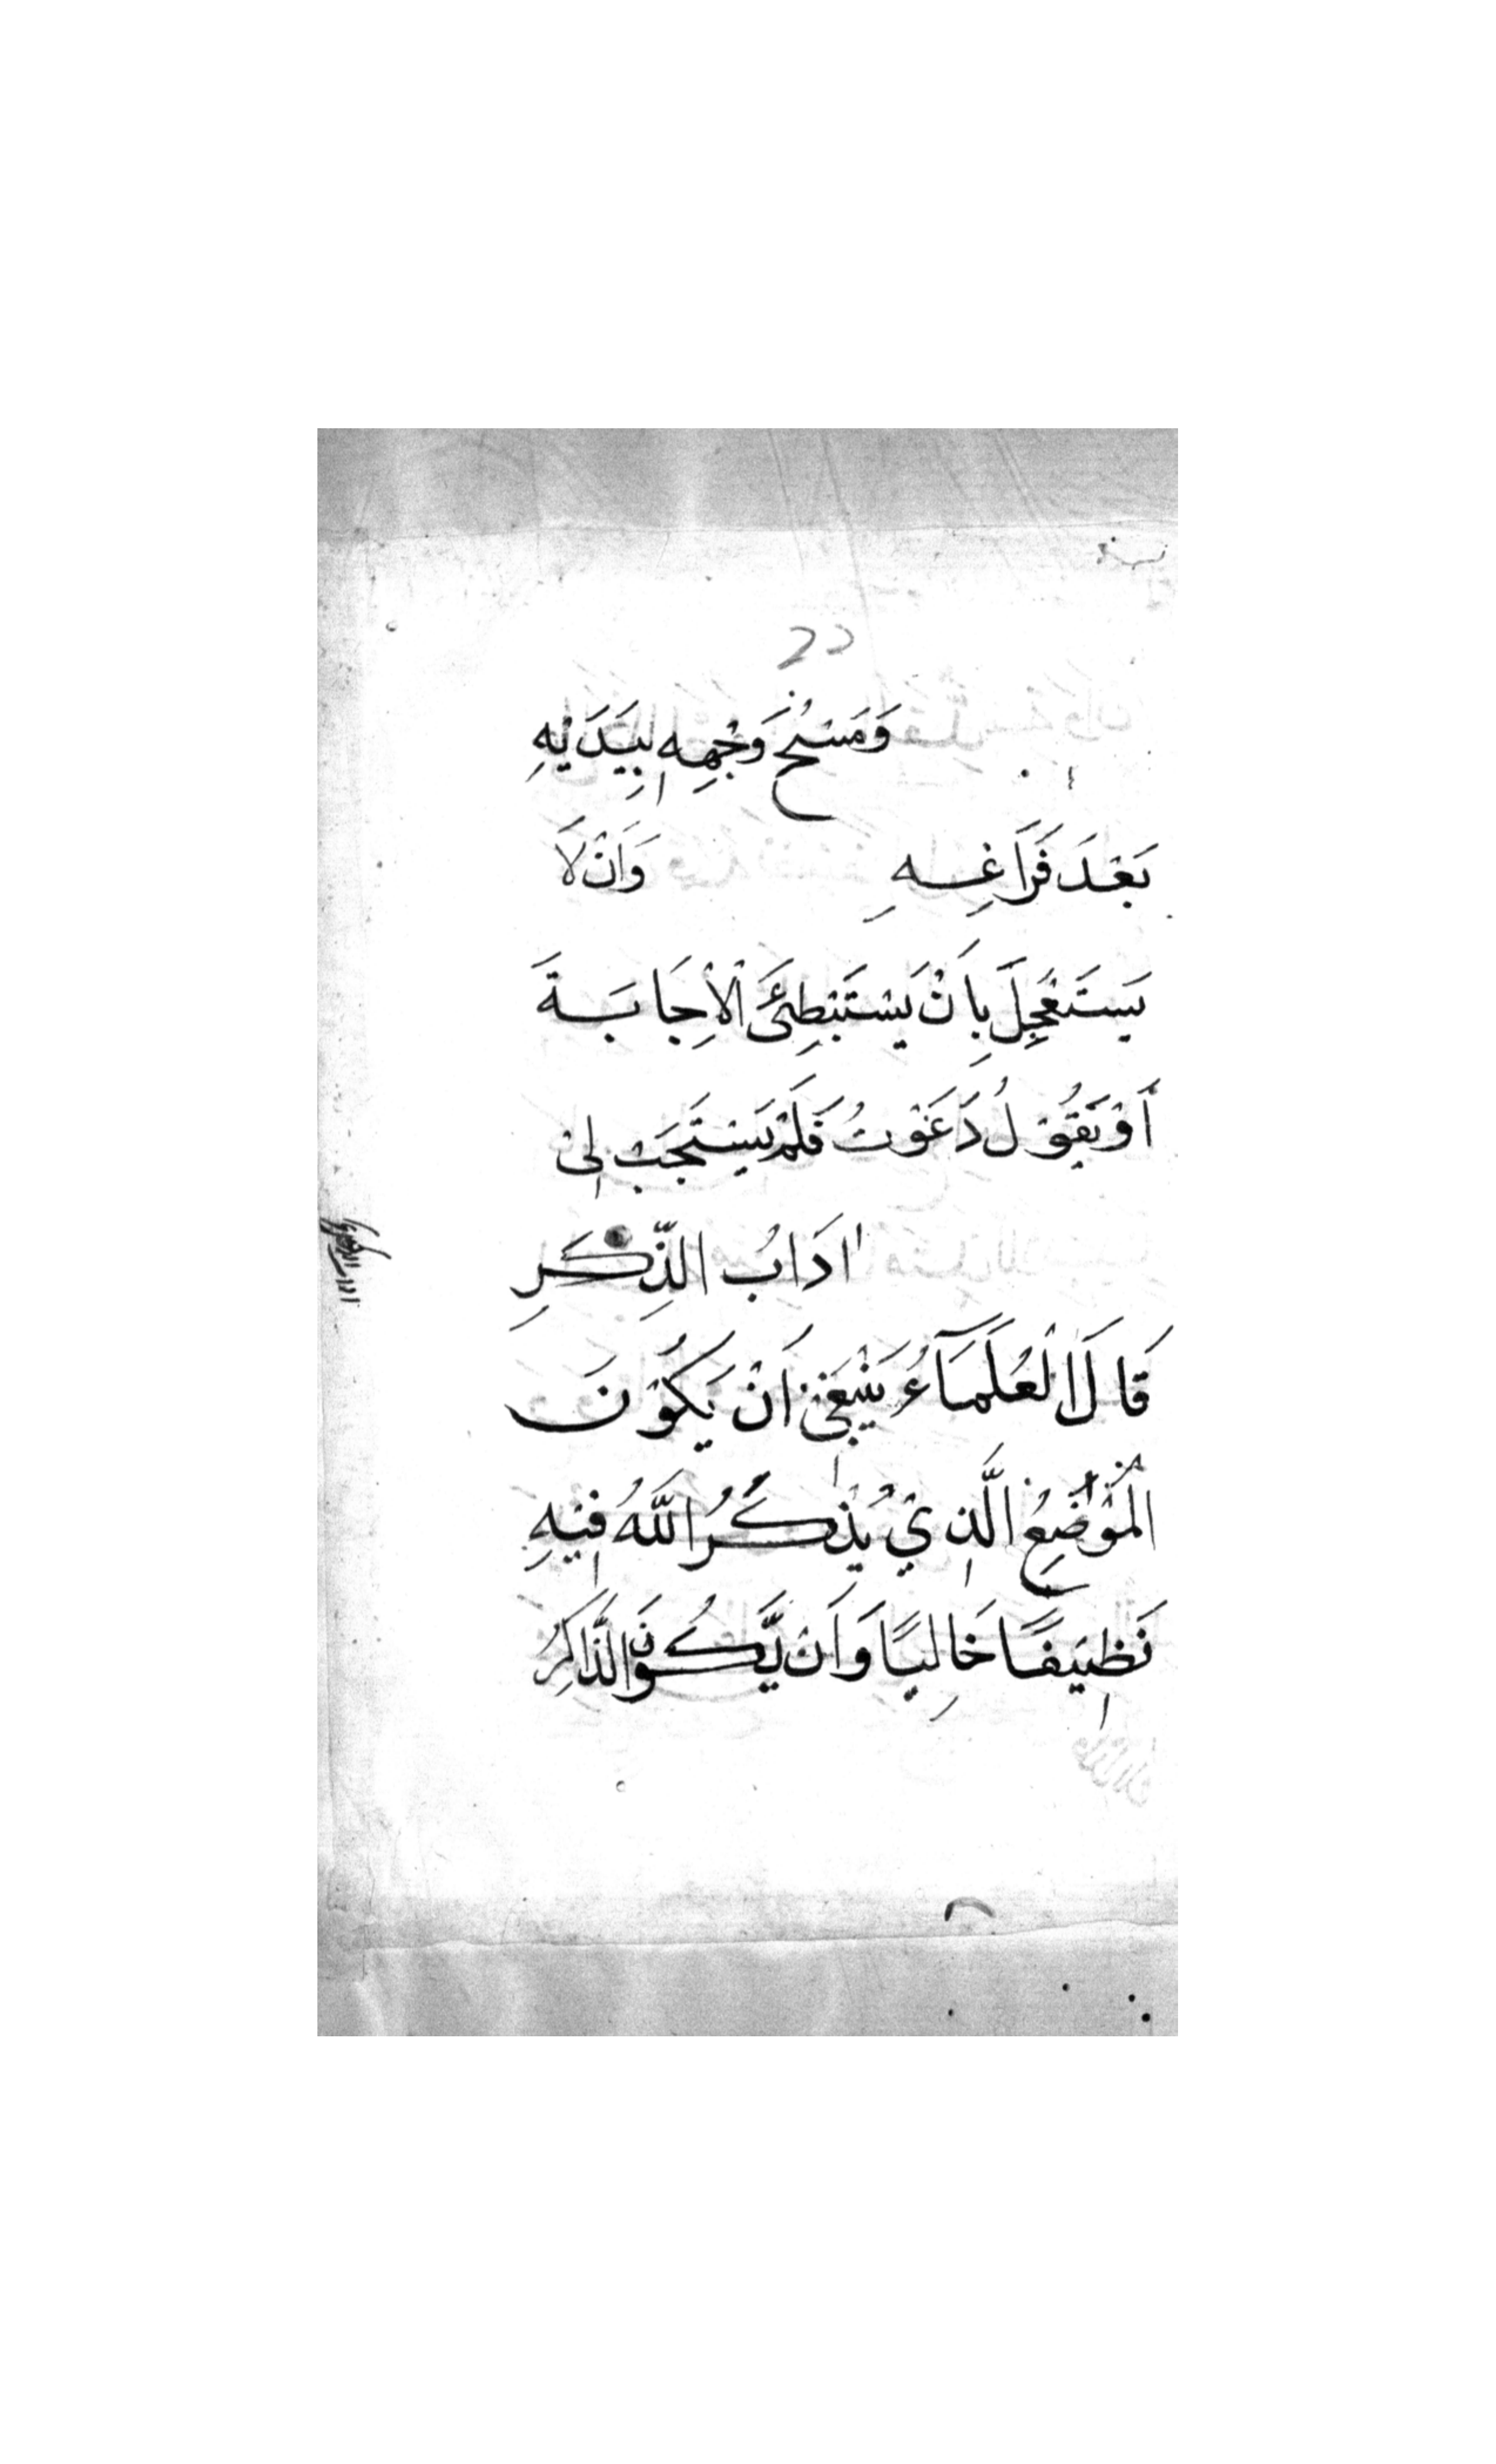 وَمَسْحُ وَجْهِهِ بِيَدَيْهِ
بَعْدَ فَرَاغِهِ وَاَنْ لَا
يَسْتَعْجِلَ بِاَنْ يَسْتَبْطِئَ الْاِجَابَةَ
اَوْ يَقُوْلُ دَعَوْتُ فَلَمْ يَسْتَجَبْ لِيْ
اٰدَابُ الذِّكْرِ
قَالَ الْعُلَمَآءُ يَنْبَغِيْ اَنْ يَكُوْنَ
الْمَوْضِعُ الَّذِيْ يُذْكَرُ اللّٰهُ فِيْهِ
نَظِيْفًا خَالِيًا وَاَنْ يَّكُوْنَ الذَّاكِرُ